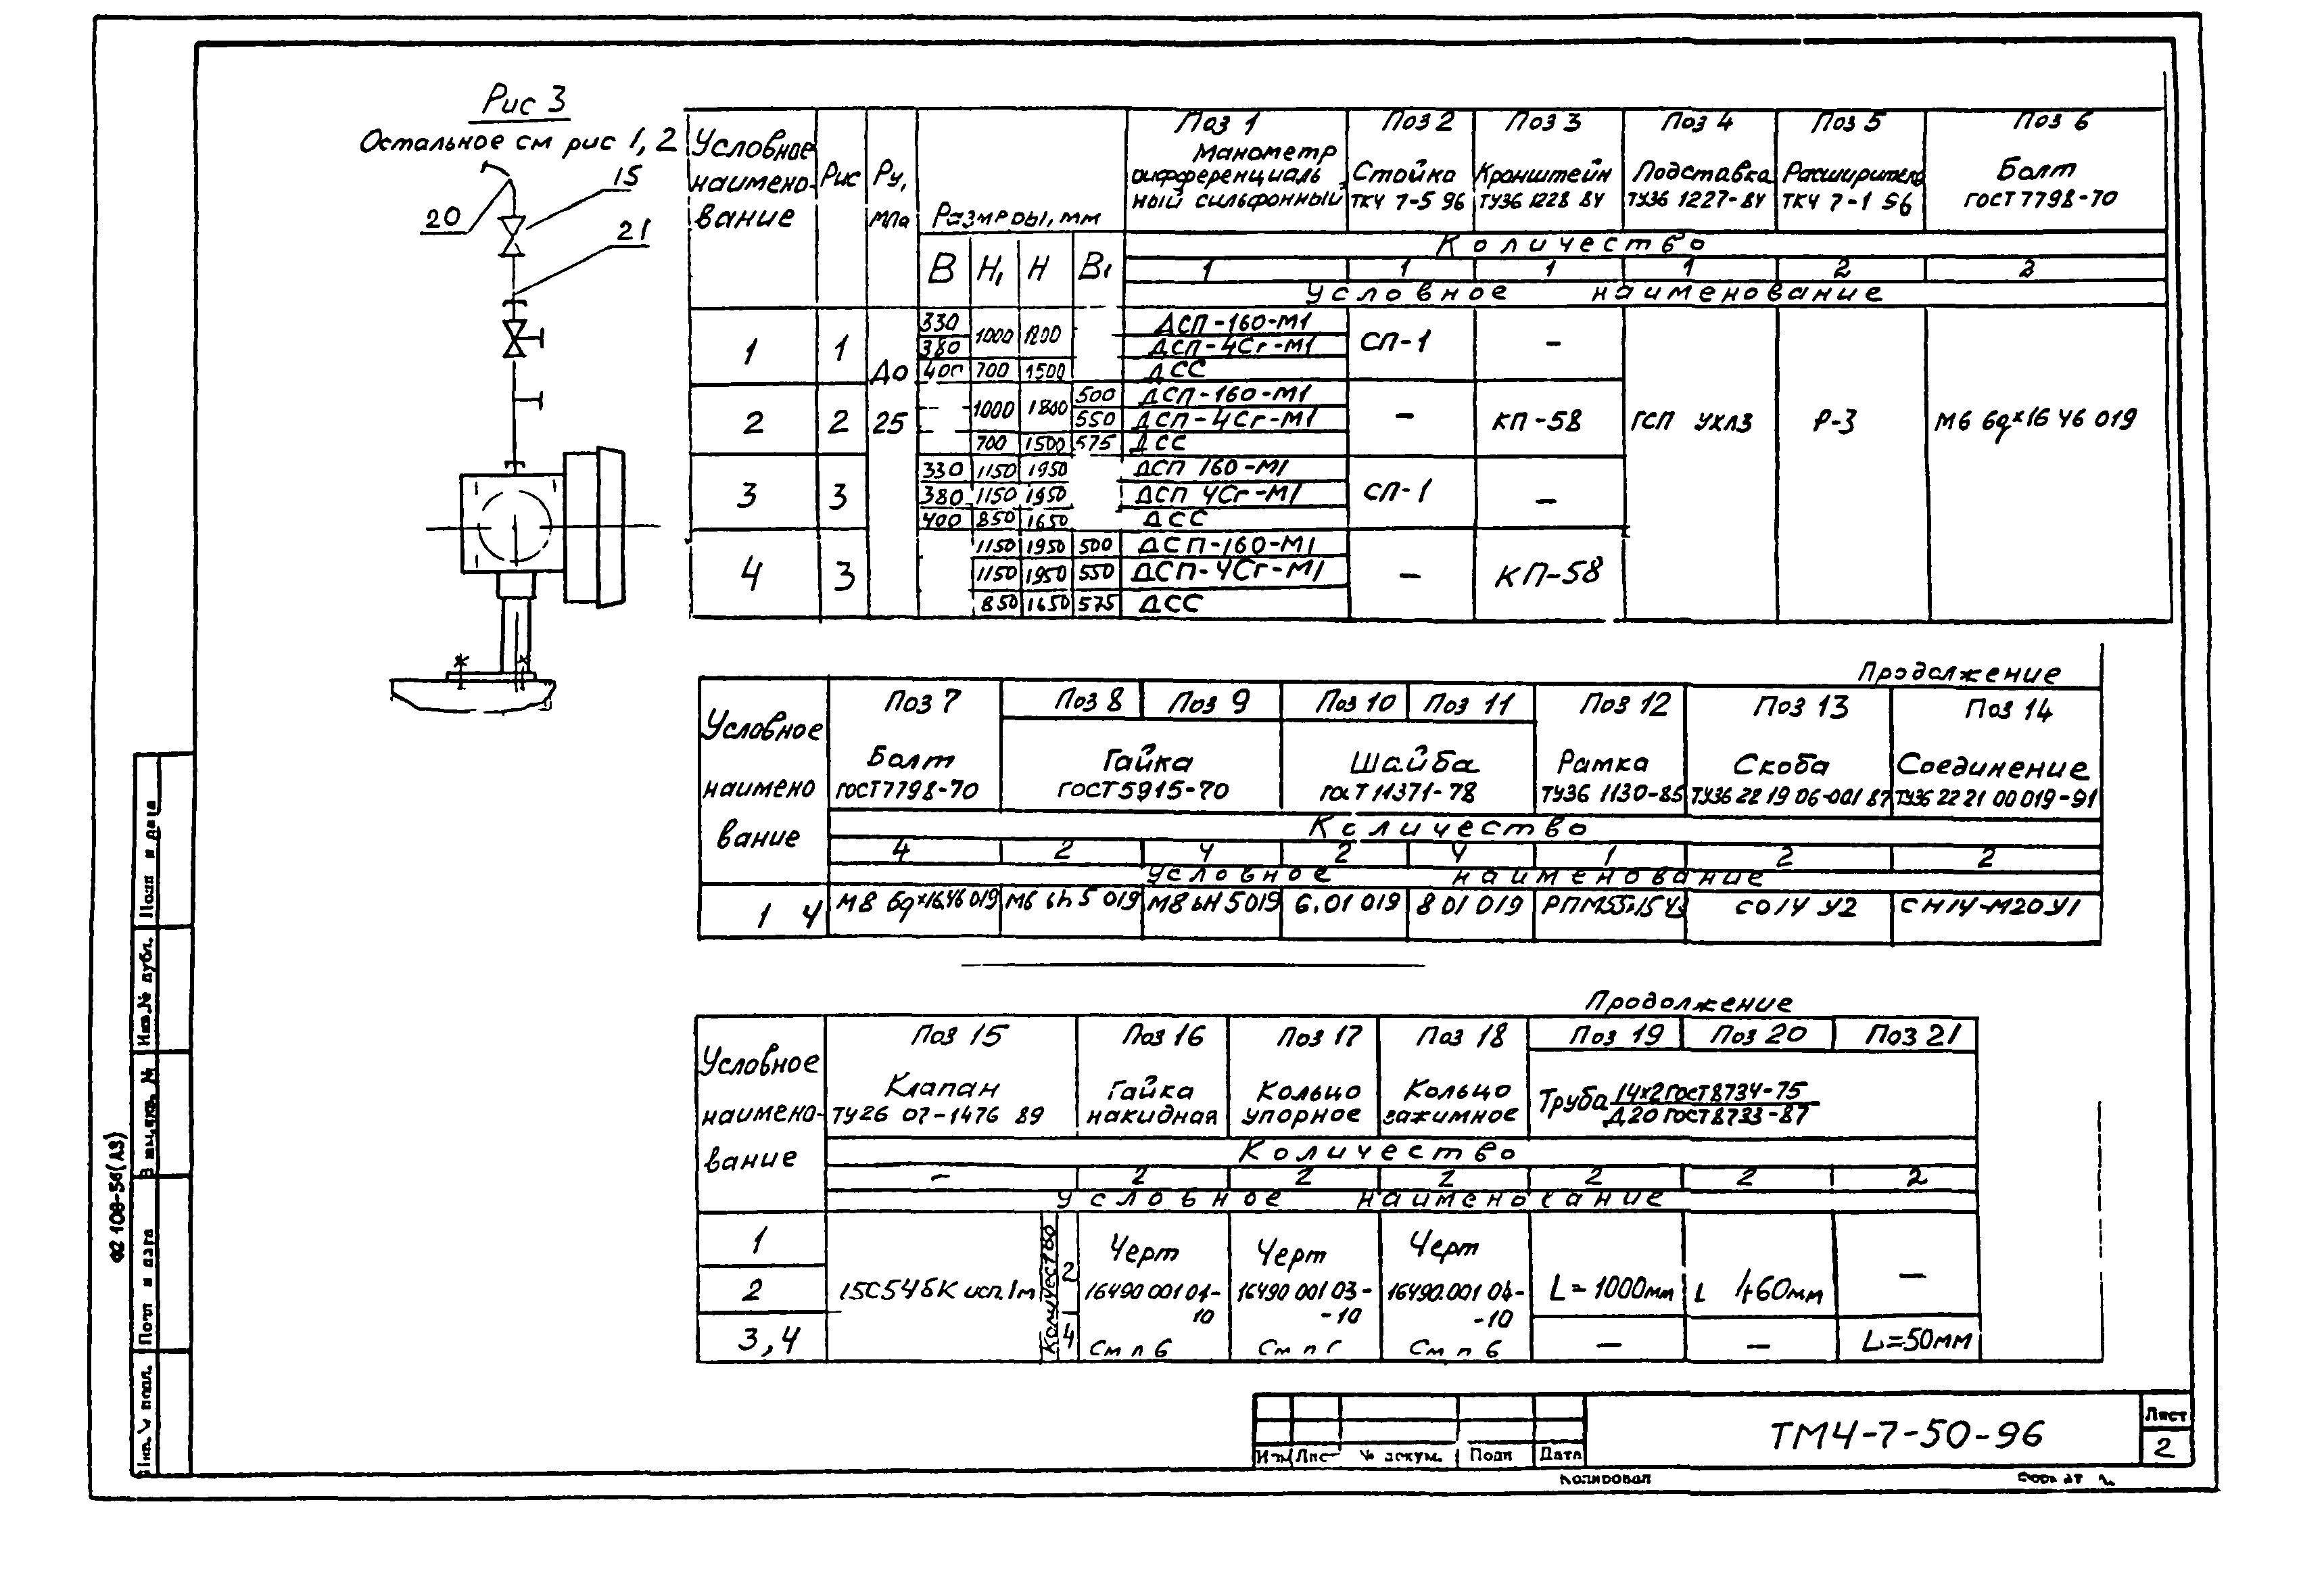 Рис 3
Остальное см рис 1, 2
15
20
21
Условное наимено- вание
Рис
Ру, МПа
Размеры, мм
В Н₁ Н В₁
Поз 1 Манометр дифференциаль ный сильфонный
Поз 2 Стойка ТК4 7-5 96
Поз 3 Кронштейн ТУ36 1228 84
Поз 4 Подставка ТУ36 1227-84
Поз 5 Расширитель ТК4 7-1 96
Поз 6 Болт ГОСТ 7798-70
Количество
1 1 1 1 2 2
Условное наименование
1 1 До 25
330 1000 1800 ДСП-160-М1 СП-1 –
380 ДСП-4Сг-М1
400 700 1500 ДСС
2 2
1000 1800 500 ДСП-160-М1 – КП-58 ГСП УХЛ3 Р-3 М6 6g×16 46 019
550 ДСП-4Сг-М1
700 1500 575 ДСС
3 3
330 1150 1950 ДСП 160-М1 СП-1 –
380 1150 1950 ДСП 4Сг-М1
400 850 1650 ДСС
4 3
1150 1950 500 ДСП-160-М1 – КП-58
1150 1950 550 ДСП-4Сг-М1
850 1650 575 ДСС
Продолжение
Условное наимено вание
Поз 7 Болт ГОСТ 7798-70
Поз 8 Поз 9 Гайка ГОСТ 5915-70
Поз 10 Поз 11 Шайба ГОСТ 11371-78
Поз 12 Рамка ТУ36 1130-85
Поз 13 Скоба ТУ36 22 19 06-001 87
Поз 14 Соединение ТУ36 22 21 00 019-91
Количество
4 2 4 2 4 1 2 2
Условное наименование
1 4 М8 6g×16.46 019 М6 6Н 5 019 М8 6Н 5 019 6.01 019 8 01 019 СО14 У2 СН14-М20 У1
Продолжение
Условное наимено- вание
Поз 15 Клапан ТУ26 07-1476 89
Поз 16 Гайка накидная
Поз 17 Кольцо упорное
Поз 18 Кольцо зажимное
Поз 19 Поз 20 Поз 21
Труба 14х2 ГОСТ 8734-75
Д20 ГОСТ 8733-87
Количество
– 2 2 2 2 2 2
Условное наименование
1
2
3, 4
15С54бК исп. 1м
Количество 2 4
Черт 16490 001 01-10 См п 6
Черт 16490 001 03--10 См п 6
Черт 16490.001 04--10 См п 6
L = 1000мм –
L 460мм –
– L=50мм
Изм Лист № докум. Подп Дата
ТМ4-7-50-96
Лист
2
Копировал
Формат
Ф2 108-56(А3)
Инв. № подл.
Подп и дата
Взам. инв. №
Инв. № дубл.
Подп и дата